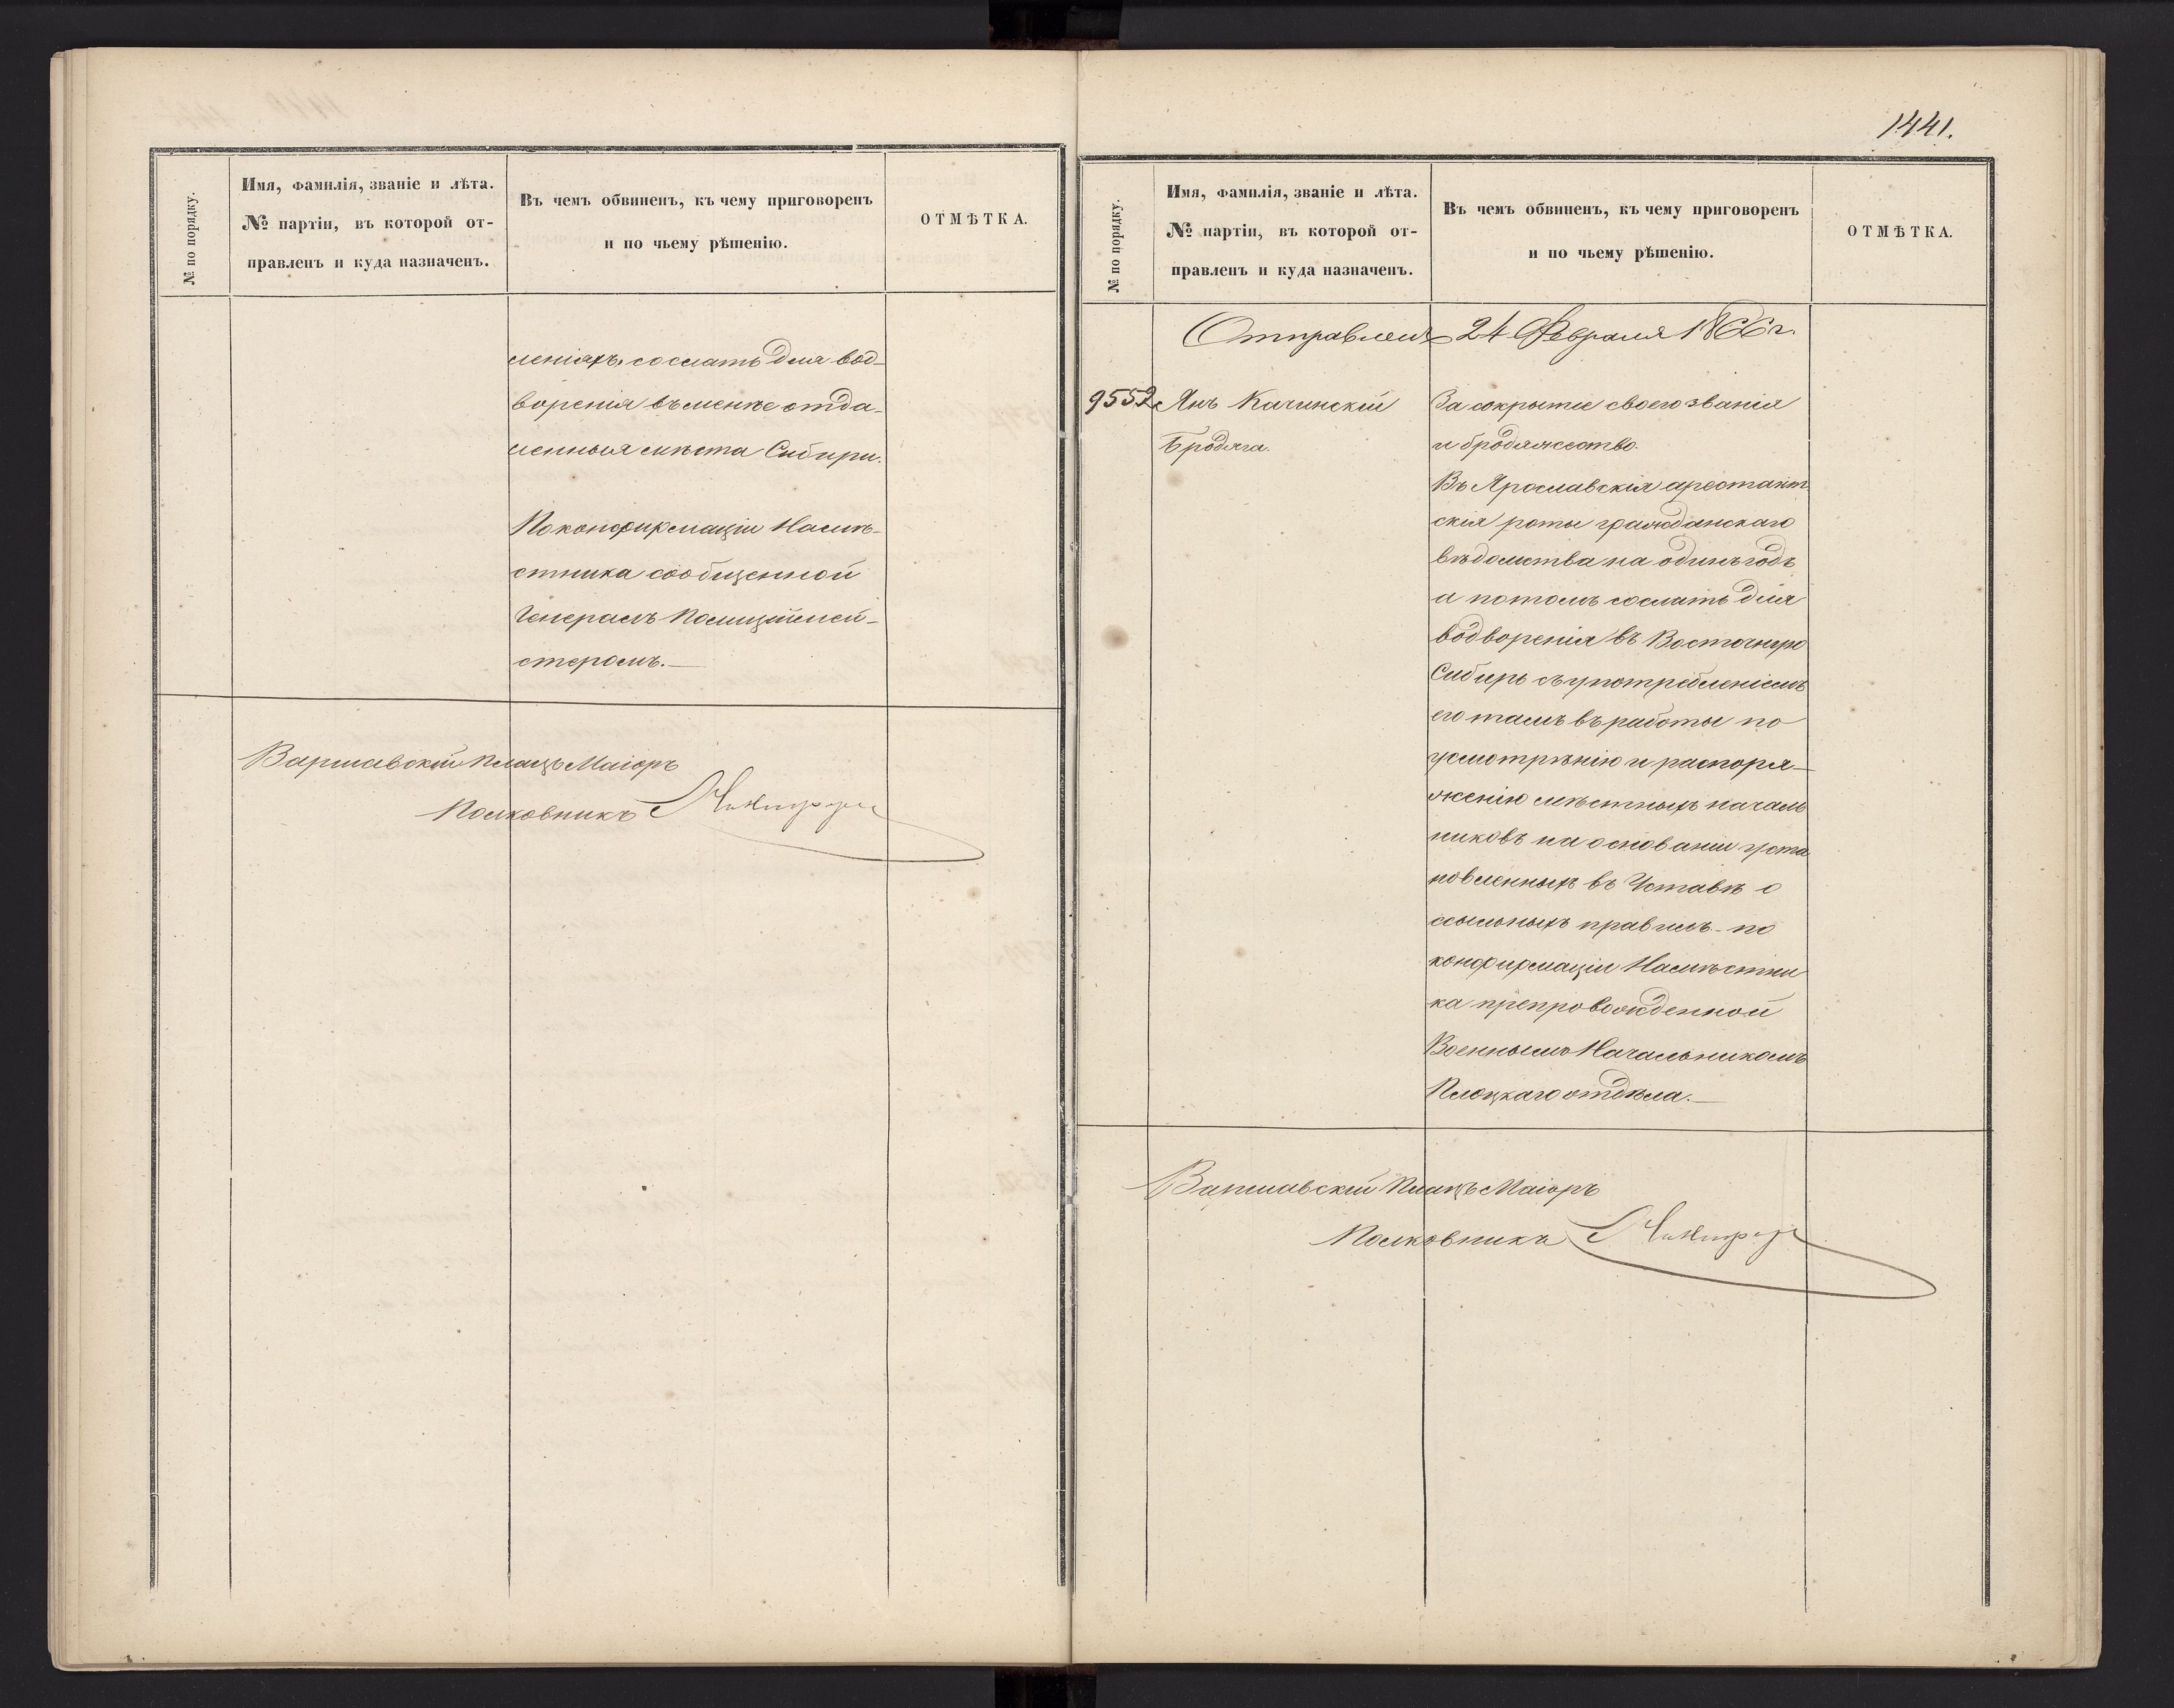 № по порядку.
Имя, фамилія, званіе и лѣта.
№ партіи, въ которой от-
правленъ и куда назначенъ.
Въ чемъ обвиненъ, къ чему приговоренъ
и по чьему рѣшенію.
ОТМѢТКА.
леніяхъ, сослать для вод-
воренія въ менѣе отда-
ленныя мѣста Сибири.
По конфирмаціи Намѣ-
стника сообщенной
Генералъ Полицiймей-
стеромъ.—
Варшавскій Плацъ Маіоръ
Полковникъ
1441.
№ по порядку.
Имя, фамилія, званіе и лѣта.
№ партіи, въ которой от-
правленъ и куда назначенъ.
Въ чемъ обвиненъ, къ чему приговоренъ
и по чьему рѣшенію.
ОТМѢТКА.
Отправленъ 24 Февраля 1866 г.
9552
Янъ Качинскій
Бродяга.
За сокрытіе своего званія
и бродяжество.
Въ Ярославскія арестант
скія роты гражданскаго
вѣдомства на одинъ годъ
и потомъ сослать для
водворенія въ Восточную
Сибирь съ употребленіемъ
его тамъ въ работы по
усмотрѣнію и распоря-
женію мѣстныхъ началь
никовъ на основаніи уста
новленныхъ въ Уставѣ о
ссыльныхъ правилъ - по
конфирмаціи Намѣстни
ка препровожденной
Военнымъ Начальникомъ
Плоцкаго отдѣла.—
Варшавскій Плацъ Маіоръ
Полковникъ